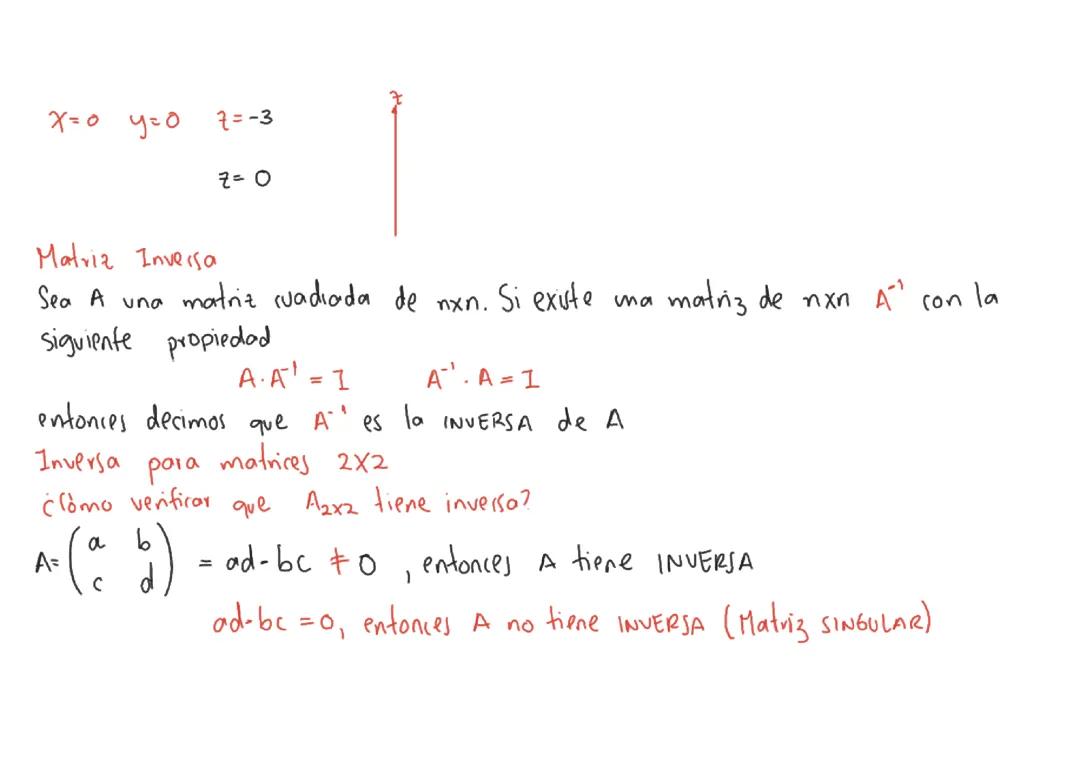 x=0 y=0 z=-3
z
z=0
Matriz Inversa
Sea A una matriz cuadrada de nxn. Si existe una matriz de nxn A⁻¹ con la
siguiente propiedad
A·A⁻¹ = I A⁻¹·A = I
entonces decimos que A⁻¹ es la INVERSA de A
Inversa para matrices 2X2
¿Cómo verificar que A₂ₓ₂ tiene inversa?
A= (a b
c d) = ad-bc ≠ 0, entonces A tiene INVERSA
ad-bc = 0, entonces A no tiene INVERSA (Matriz SINGULAR)